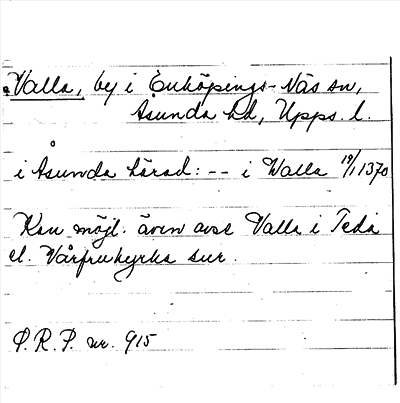 Valla, by i Enköpings-Näs sn,
Åsunda hd, Upps. l.
i Åsunda härad: -- i Walla 19/1 1370
Kan möjl. även avse Valla i Teda
el. Vårfrukyrka snr.
P.R.P. nr. 915